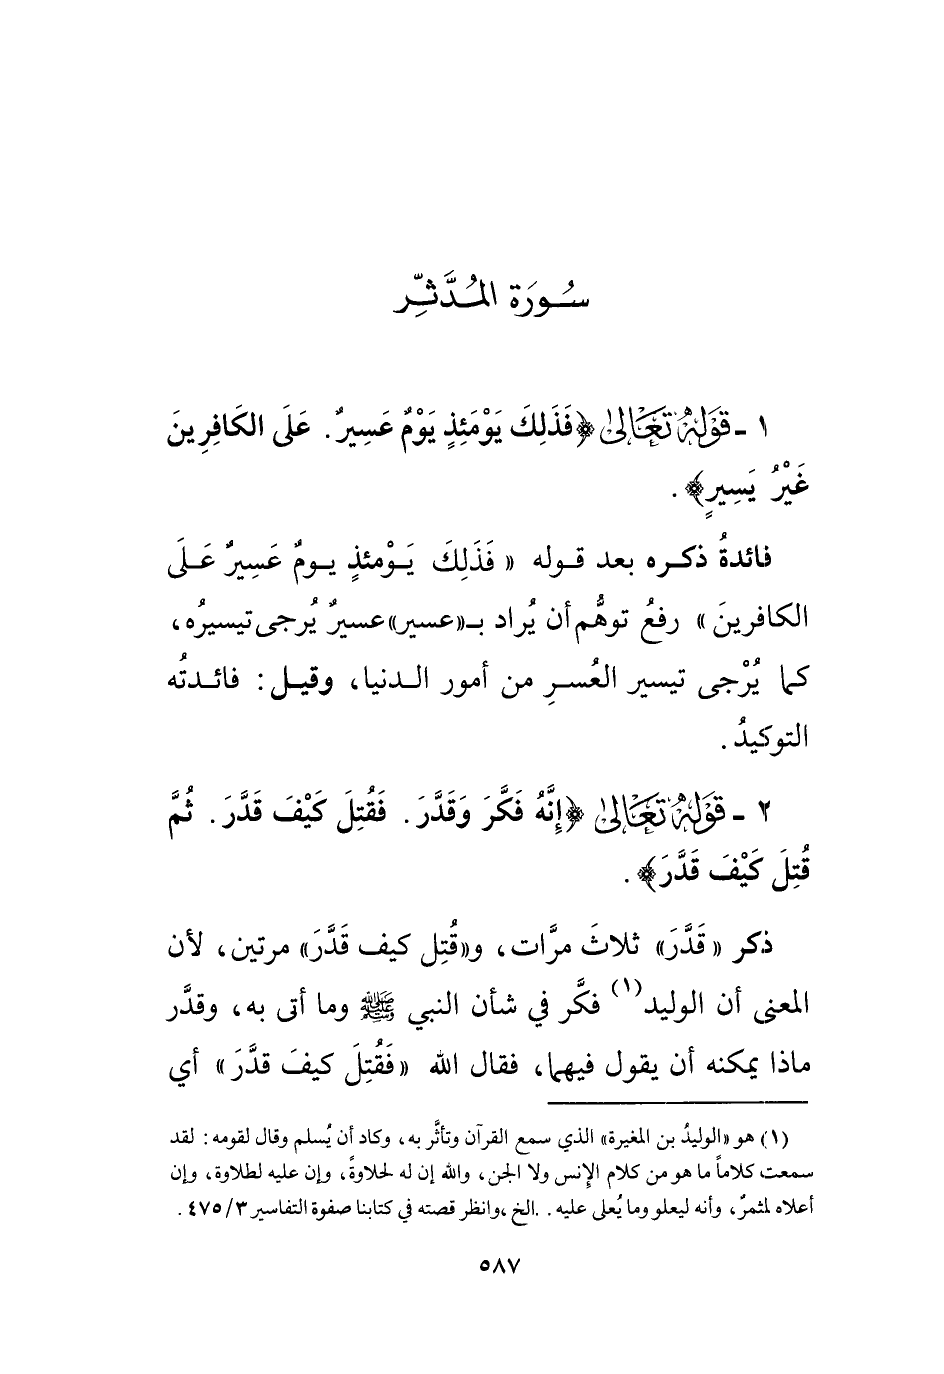 سُورَة المُدَّثِّر
١ - قَوْلُهُ تَعَالَىٰ ﴿فَذَلِكَ يَوْمَئِذٍ يَوْمٌ عَسِيرٌ. عَلَى الكَافِرِينَ
غَيْرُ يَسِيرٍ﴾.
فائدةُ ذكره بعد قوله «فَذَلِكَ يَوْمئذٍ يومٌ عَسِيرٌ عَلَى
الكافرينَ» رفعُ توهُّم أن يُراد بـ«عسير» عسيرٌ يُرجى تيسيرُه،
كما يُرْجى تيسير العُسرِ من أمور الدنيا، وقيل: فائدتُه
التوكيدُ.
٢ - قَوْلُهُ تَعَالَىٰ ﴿إِنَّهُ فَكَّرَ وَقَدَّرَ. فَقُتِلَ كَيْفَ قَدَّرَ. ثُمَّ
قُتِلَ كَيْفَ قَدَّرَ﴾.
ذكر «قَدَّرَ» ثلاثَ مرَّات، و«قُتِل كيف قَدَّرَ» مرتين، لأن
المعنى أن الوليد(١) فكَّر في شأن النبي ﷺ وما أتى به، وقدَّر
ماذا يمكنه أن يقول فيهما، فقال الله «فَقُتِلَ كيفَ قدَّرَ» أي
(١) هو «الوليدُ بن المغيرة» الذي سمع القرآن وتأثَّر به، وكاد أن يُسلم وقال لقومه: لقد
سمعت كلاماً ما هو من كلام الإنس ولا الجن، والله إن له لحلاوةً، وإن عليه لطلاوة، وإن
أعلاه لمثمرٌ، وأنه ليعلو وما يُعلى عليه . .الخ، وانظر قصته في كتابنا صفوة التفاسير ٤٧٥/٣ .
٥٨٧